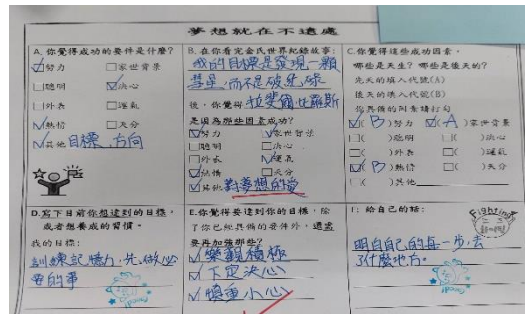 夢想就在不遠處
A. 你覺得成功的要件是什麼?
☑努力 □家世背景
□聰明 ☑決心
□外表 □運氣
☑熱情 □天分
☑其他 目標,方向
B. 在你看完金氏世界紀錄故事:
我的目標是發現一顆
彗星,而不是破紀錄
後,你覺得 拉斐爾·比羅斯
是因為那些因素成功?
☑努力 ☑家世背景
□聰明 □決心
□外表 ☑運氣
☑熱情 □天分
☑其他 對夢想的
C. 你覺得這些成功因素,
哪些是天生?哪些是後天的?
先天的填入代號(A)
後天的填入代號(B)
你具備的因素請打勾
☑( B )努力 ☑( A )家世背景
□( )聰明 □( )決心
□( )外表 □( )運氣
☑( B )熱情 □( )天分
□( )其他
D. 寫下目前你想達到的目標,
或者想養成的習慣。
我的目標:
訓練記憶力,先做必
要的事
Good!
E. 你覺得要達到你的目標,除
了你已經具備的要件外,還需
要再加強那些?
☑樂觀積極
☑下定決心
☑慎重小心
F: 給自己的話:
Fighting
明白自己的每一步,去
了什麼地方。
Good!